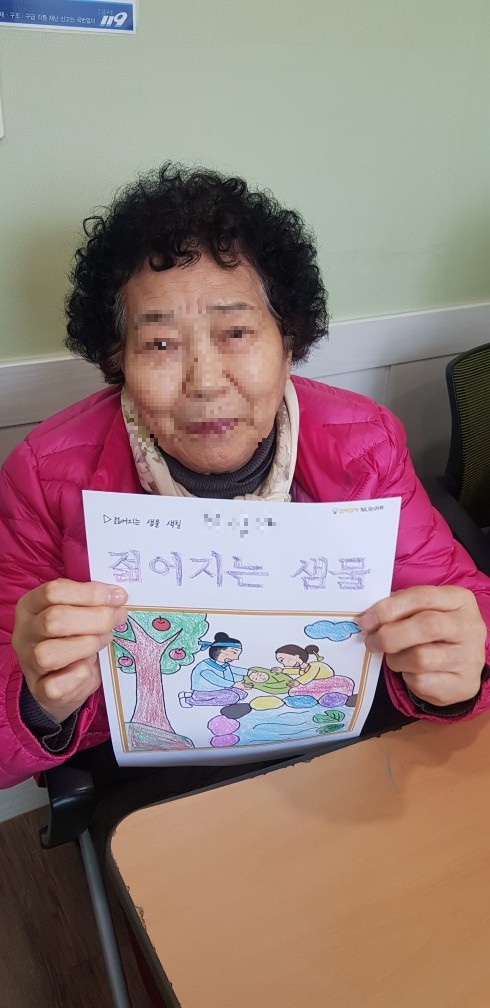 구조·구급 각종 재난 신고는 국번없이
119
▷ 젊어지는 샘물 색칠
젊어지는 샘물